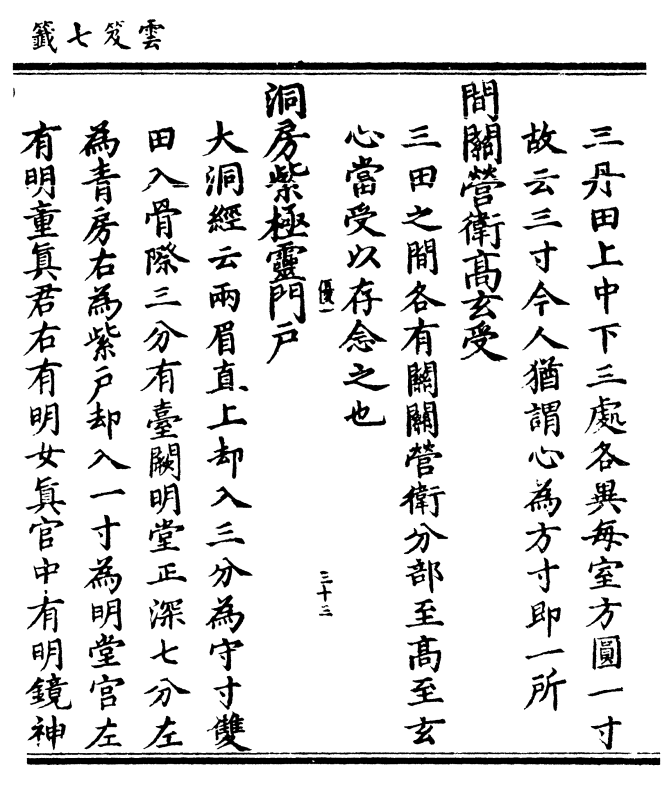 雲笈七籤
三丹田上中下三處各異每室方圓一寸
故云三寸今人猶謂心為方寸即一所
間關營衛高玄受
三田之間各有關關營衛分部至高至玄
心當受以存念之也
優一
三十三
洞房紫極靈門戶
大洞經云兩眉直上却入三分為守寸雙
田入骨際三分有臺闕明堂正深七分左
為青房右為紫戶却入一寸為明堂宮左
有明童真君右有明女真官中有明鏡神